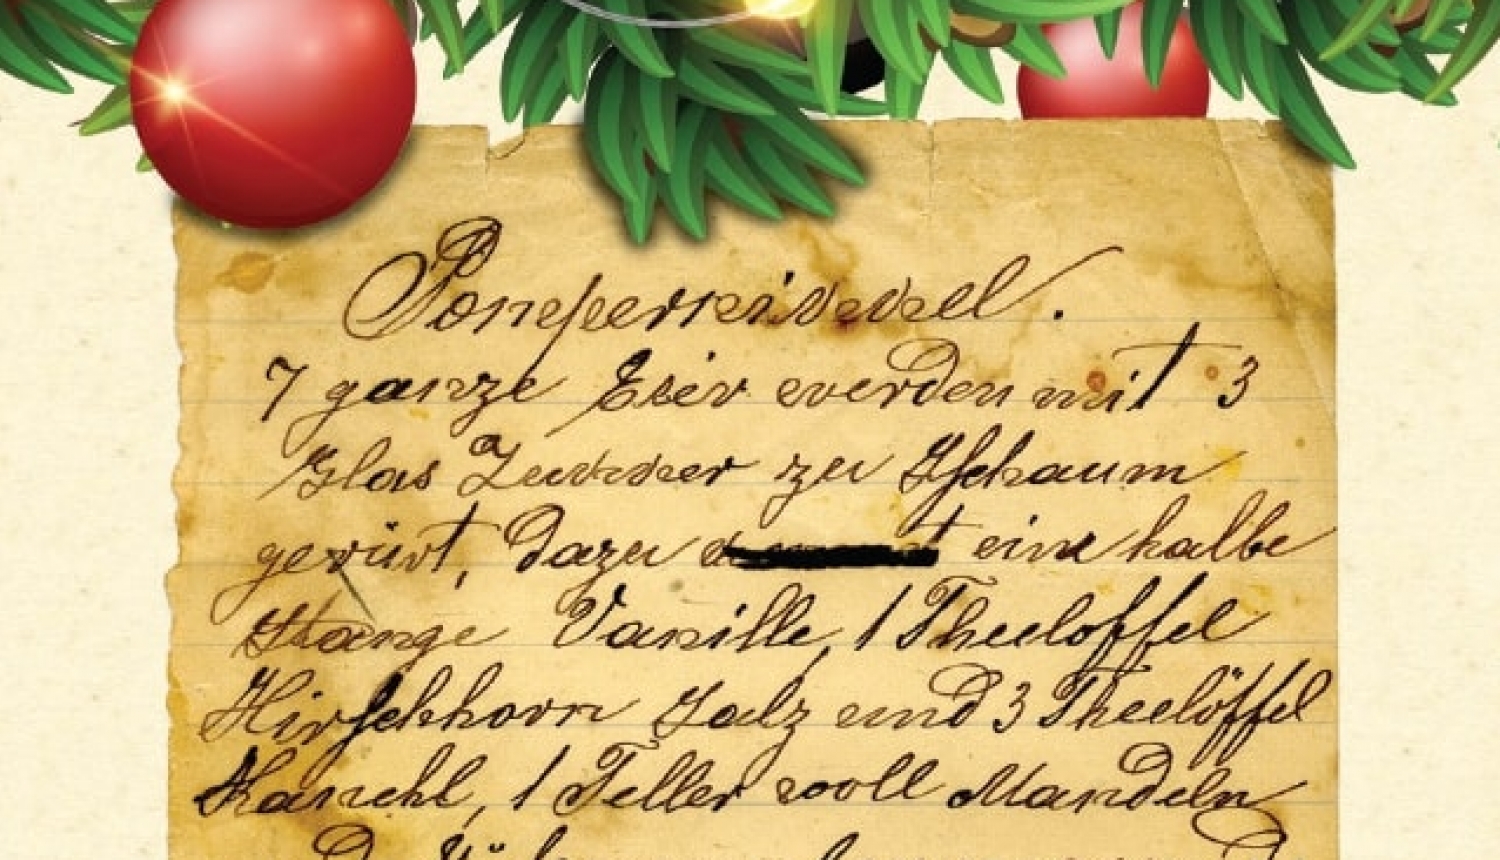 Pompernickel.
7 ganze Eier werden mit 3
Glas Zukker zu Schaum
gerürt, dazu eine halbe
Stange Vanille, 1 Theeloffel
Hirschhorn Salz und 3 Theelöffel
Kanehl, 1 Teller voll Mandeln